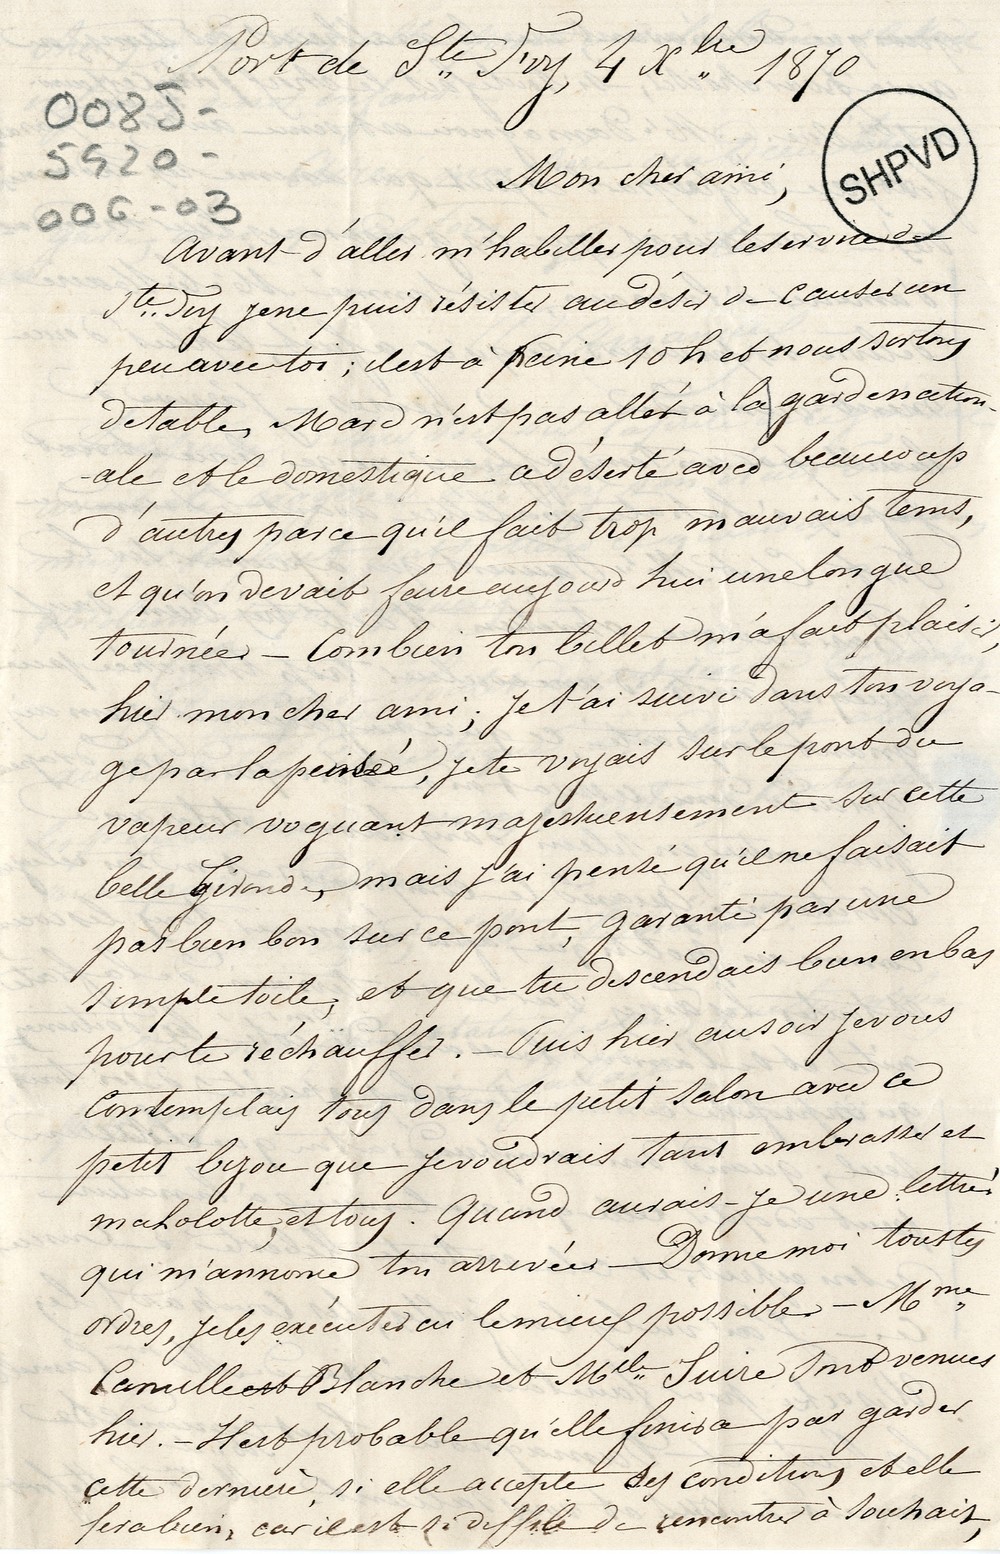 Port de Ste Foy, 4 Xbre 1870
0085-
5920-
006-03
SHPVD
Mon cher ami,
Avant d'aller m'habiller pour le service de
Ste Foy je ne puis résister au désir de causer un
peu avec toi ; il est à peine 10 h et nous sortons
de table, Marc n'est pas allé à la garde nation-
-ale et le domestique a déserté avec beaucoup
d'autres parce qu'il fait trop mauvais tems,
et qu'on devait faire aujourd'hui une longue
tournée - Combien ton billet m'a fait plaisir,
hier mon cher ami ; je t'ai suivi dans ton voya-
ge par la pensée, je te voyais sur le pont du
vapeur voguant majestueusement sur cette
belle Gironde, mais j'ai pensé qu'il ne faisait
pas bien bon sur ce pont, garanti par une
simple toile, et que tu descendais bien en bas
pour te réchauffer. - Puis hier au soir je vous
contemplais tous dans le petit salon avec ce
petit bijou que je voudrais tant embrasser et
ma lolotte, et tous. Quand aurais-je une lettre
qui m'annonce ton arrivée - Donne moi tous tes
ordres, je les exécuterai le mieux possible - Mme
Camille et Blanche et Melle Suire sont venues
hier. - Il est probable qu'elle finira par garder
cette dernière, si elle accepte ses conditions, et elle
fera bien, car il est si difficile de rencontrer à souhait,